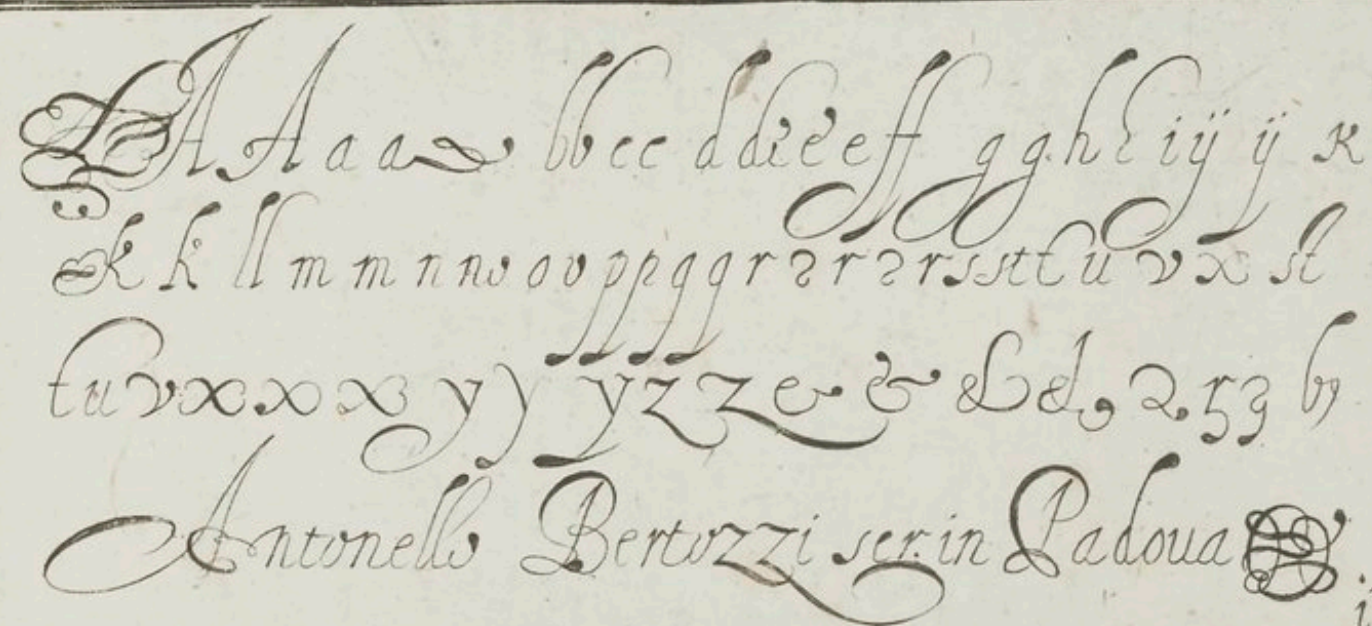 A A a a bb c c d d e e e ff g g h h i ij ij k
k k ll m m n n o o o p p q q r r r r r s s tt t u v x st
t u v x x x y y y z z & & & &
Antonello Bertozzi scr. in Padoua